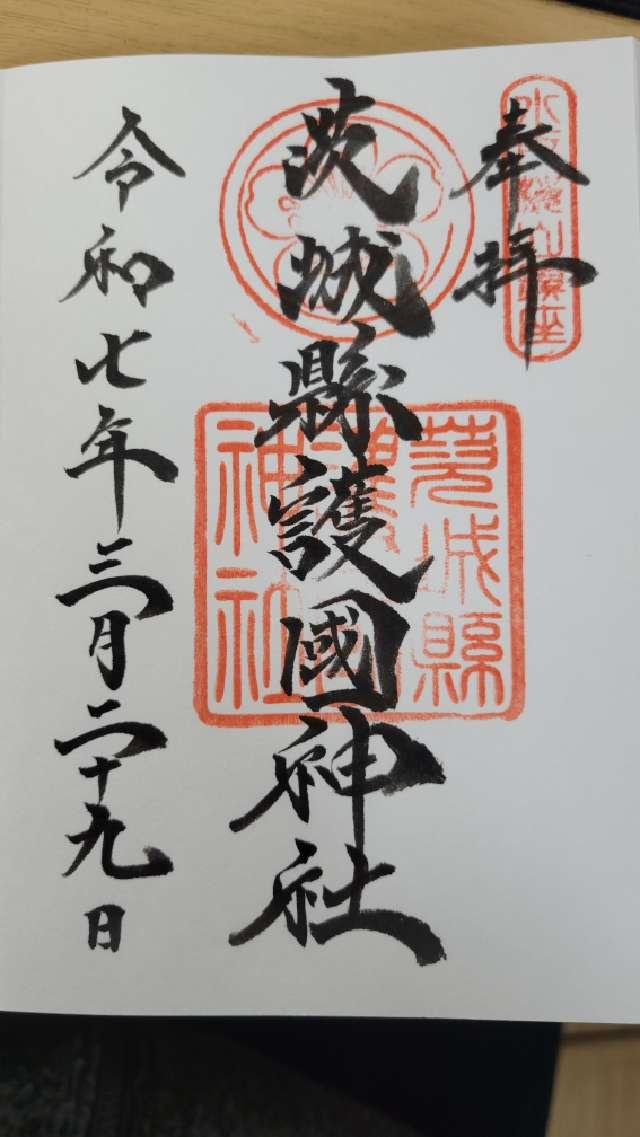 奉拝
茨城縣護國神社
令和七年三月二十九日
茨城縣
護國
神社